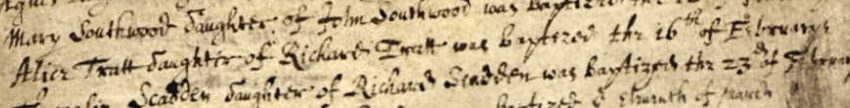 Mary Southwood daughter of John Southwood was baptized the
Alice Tratt daughter of Richard Tratt was baptized the 16th of February
Scadden daughter of Richard Scadden was baptized the 23d of February
baptized Eleventh of March